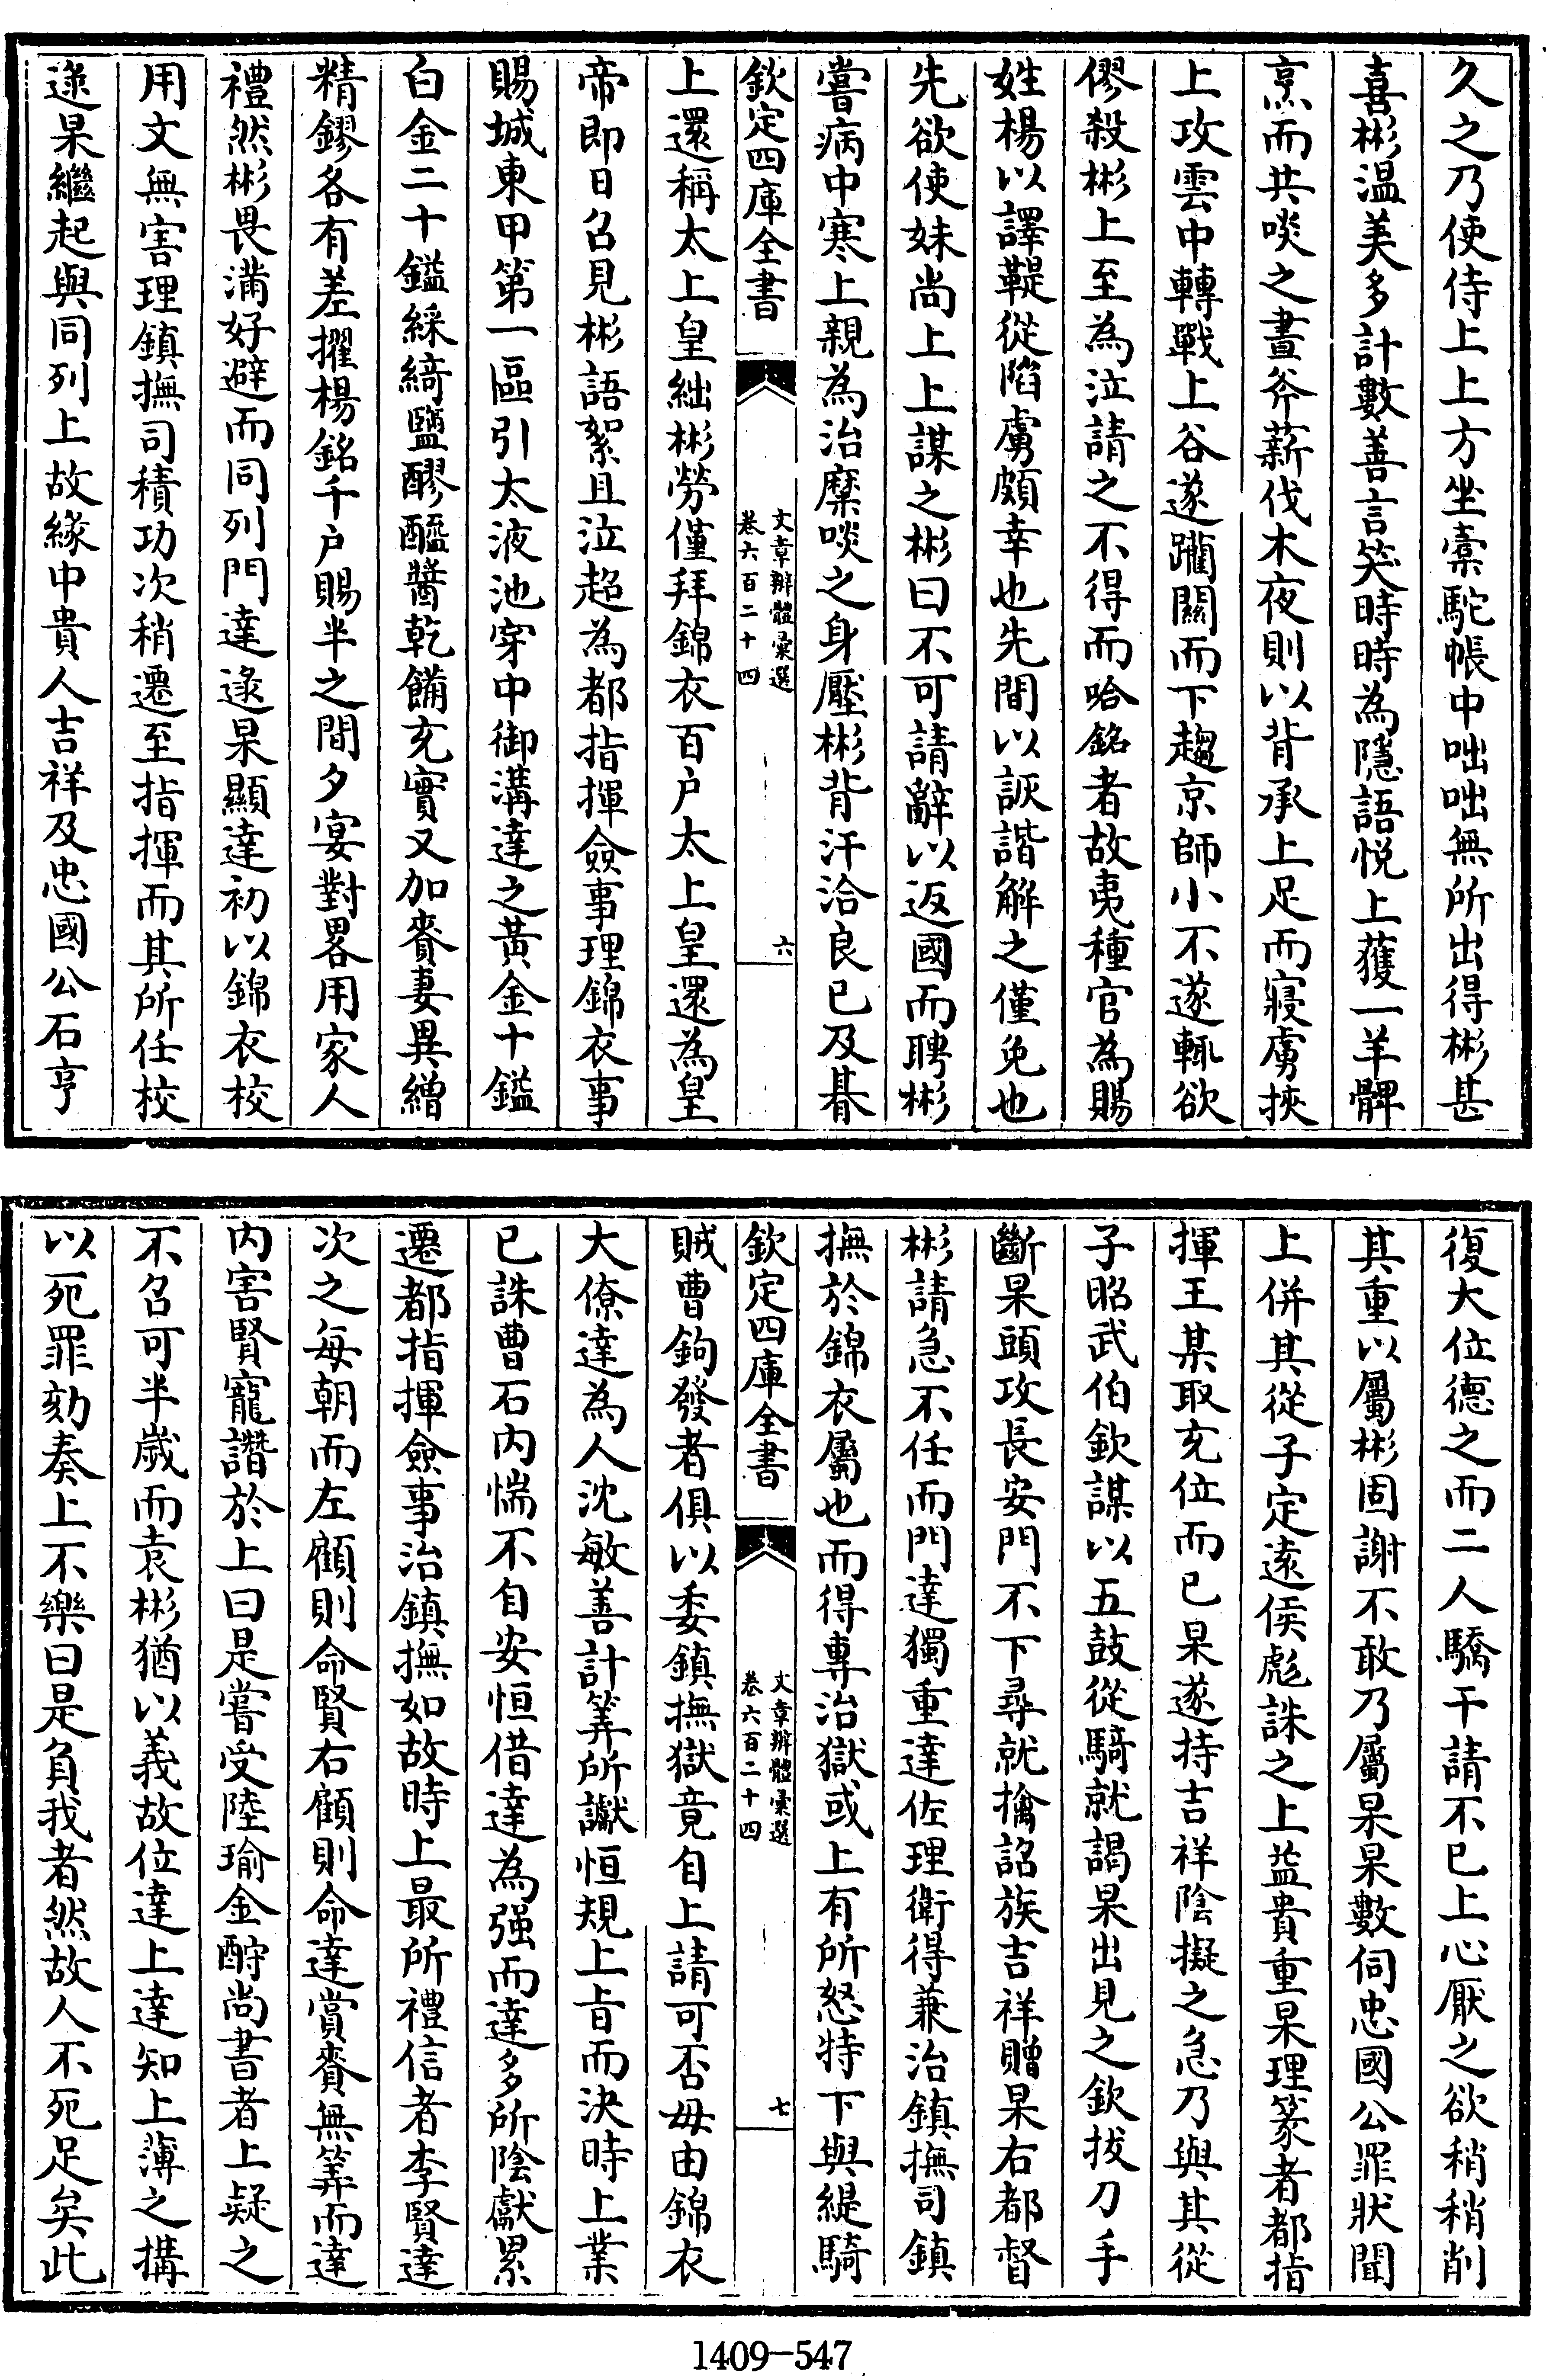 久之乃使侍上上方坐橐駝帳中咄咄無所出得彬甚
喜彬温美多計數善言笑時時為隱語悅上獲一羊髀
烹而共啖之晝斧薪伐木夜則以背承上足而寢虜挾
上攻雲中轉戰上谷遂躪關而下趨京師小不遂輒欲
僇殺彬上至為泣請之不得而哈銘者故夷種官為賜
姓楊以譯鞮從陷虜頗幸也先間以詼諧解之僅免也
先欲使妹尚上上謀之彬曰不可請辭以返國而聘彬
嘗病中寒上親為治糜啖之身壓彬背汗洽良已及朞
欽定四庫全書
文章辨體彙選
卷六百二十四
六
上還稱太上皇絀彬勞僅拜錦衣百户太上皇還為皇
帝即日召見彬語絮且泣超為都指揮僉事理錦衣事
賜城東甲第一區引太液池穿中御溝達之黃金十鎰
白金二十鎰綵綺鹽醪醯醬乾餚充實又加賚妻異繒
精鏐各有差擢楊銘千户賜半之間夕宴對畧用家人
禮然彬畏滿好避而同列門達逯杲顯達初以錦衣校
用文無害理鎮撫司積功次稍遷至指揮而其所任校
逯杲繼起與同列上故緣中貴人吉祥及忠國公石亨
復大位德之而二人驕干請不已上心厭之欲稍稍削
其重以屬彬固謝不敢乃屬杲杲數伺忠國公罪狀聞
上併其從子定遠侯彪誅之上益貴重杲理篆者都指
揮王某取充位而已杲遂持吉祥陰擬之急乃與其從
子昭武伯欽謀以五鼓從騎就謁杲出見之欽拔刀手
斷杲頭攻長安門不下尋就擒詔族吉祥贈杲右都督
彬請急不任而門達獨重達佐理衛得兼治鎮撫司鎮
撫於錦衣屬也而得專治獄或上有所怒特下與緹騎
欽定四庫全書
文章辨體彙選
卷六百二十四
七
賊曹鉤發者俱以委鎮撫獄竟自上請可否毋由錦衣
大僚達為人沈敏善計筭所讞恒規上旨而決時上業
已誅曹石内惴不自安恒借達為强而達多所陰獻累
遷都指揮僉事治鎮撫如故時上最所禮信者李賢達
次之每朝而左顧則命賢右顧則命達賞賚無筭而達
内害賢寵譖於上曰是嘗受陸瑜金酧尚書者上疑之
不召可半歲而袁彬猶以義故位達上達知上薄之搆
以死罪劾奏上不樂曰是負我者然故人不死足矣此
1409-547